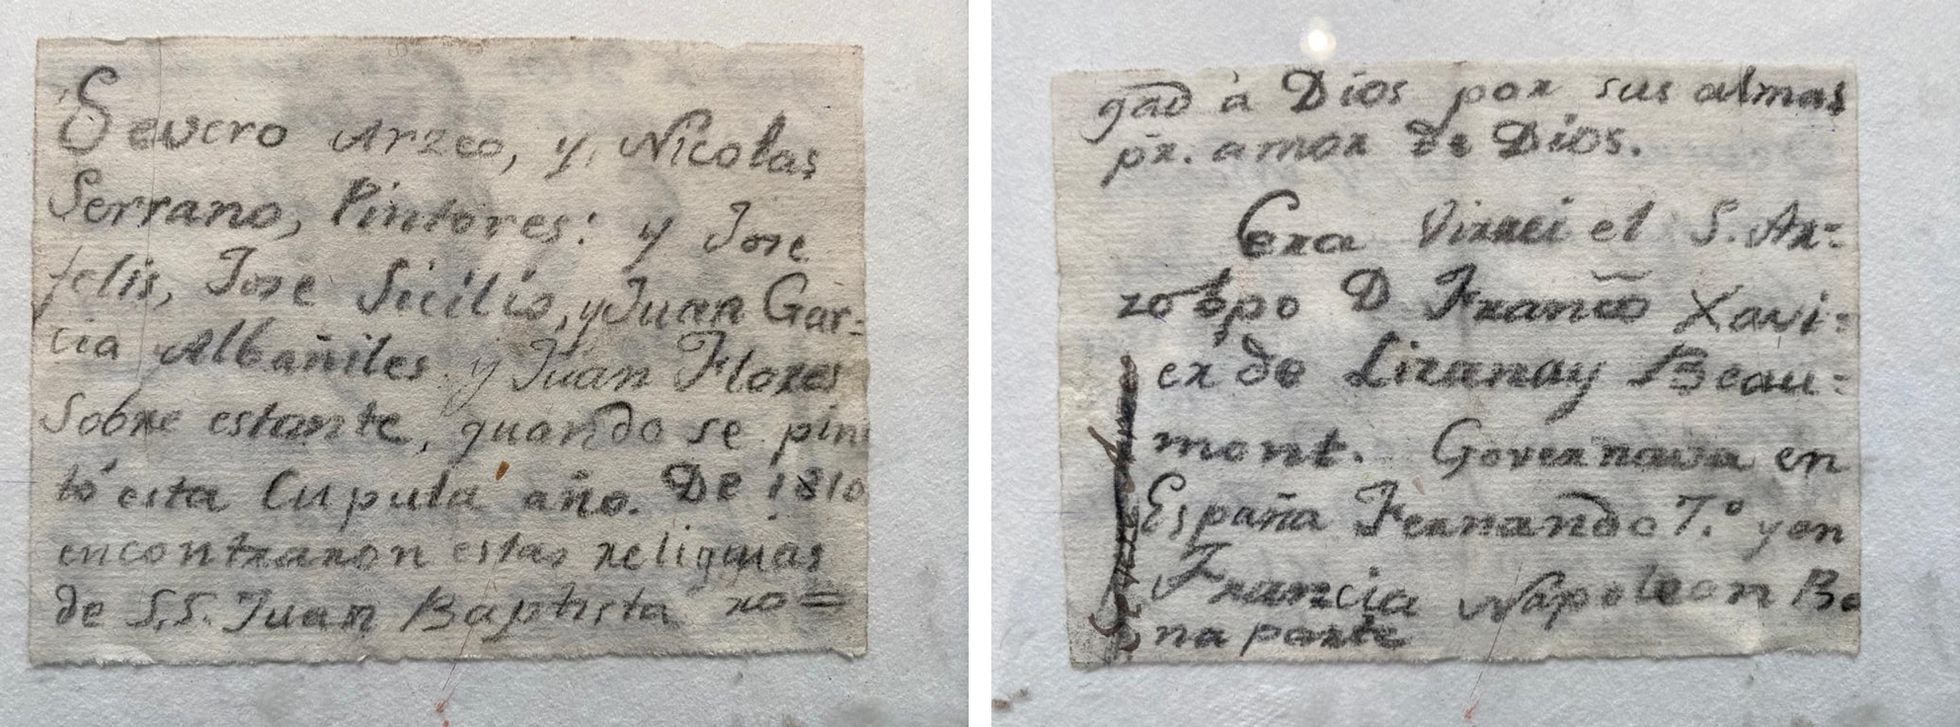 Severo Arzeo, y Nicolas
Serrano, Pintores: y Jose
felis, Jose Sicilio, y Juan Gar=
cia Albañiles y Juan Flores
Sobre estante, quando se pin
tó esta Cupula año. De 1810
encontraron estas reliquias
de S.S. Juan Baptista ro=
gad à Dios por sus almas
pr. amor de Dios.
Era Virrei el S. Ar=
zobpo D Franco Xavi=
er de Lizanay Beau=
mont. Governava en
España Fernando 7.º y en
Francia Napoleon Bo
naparte